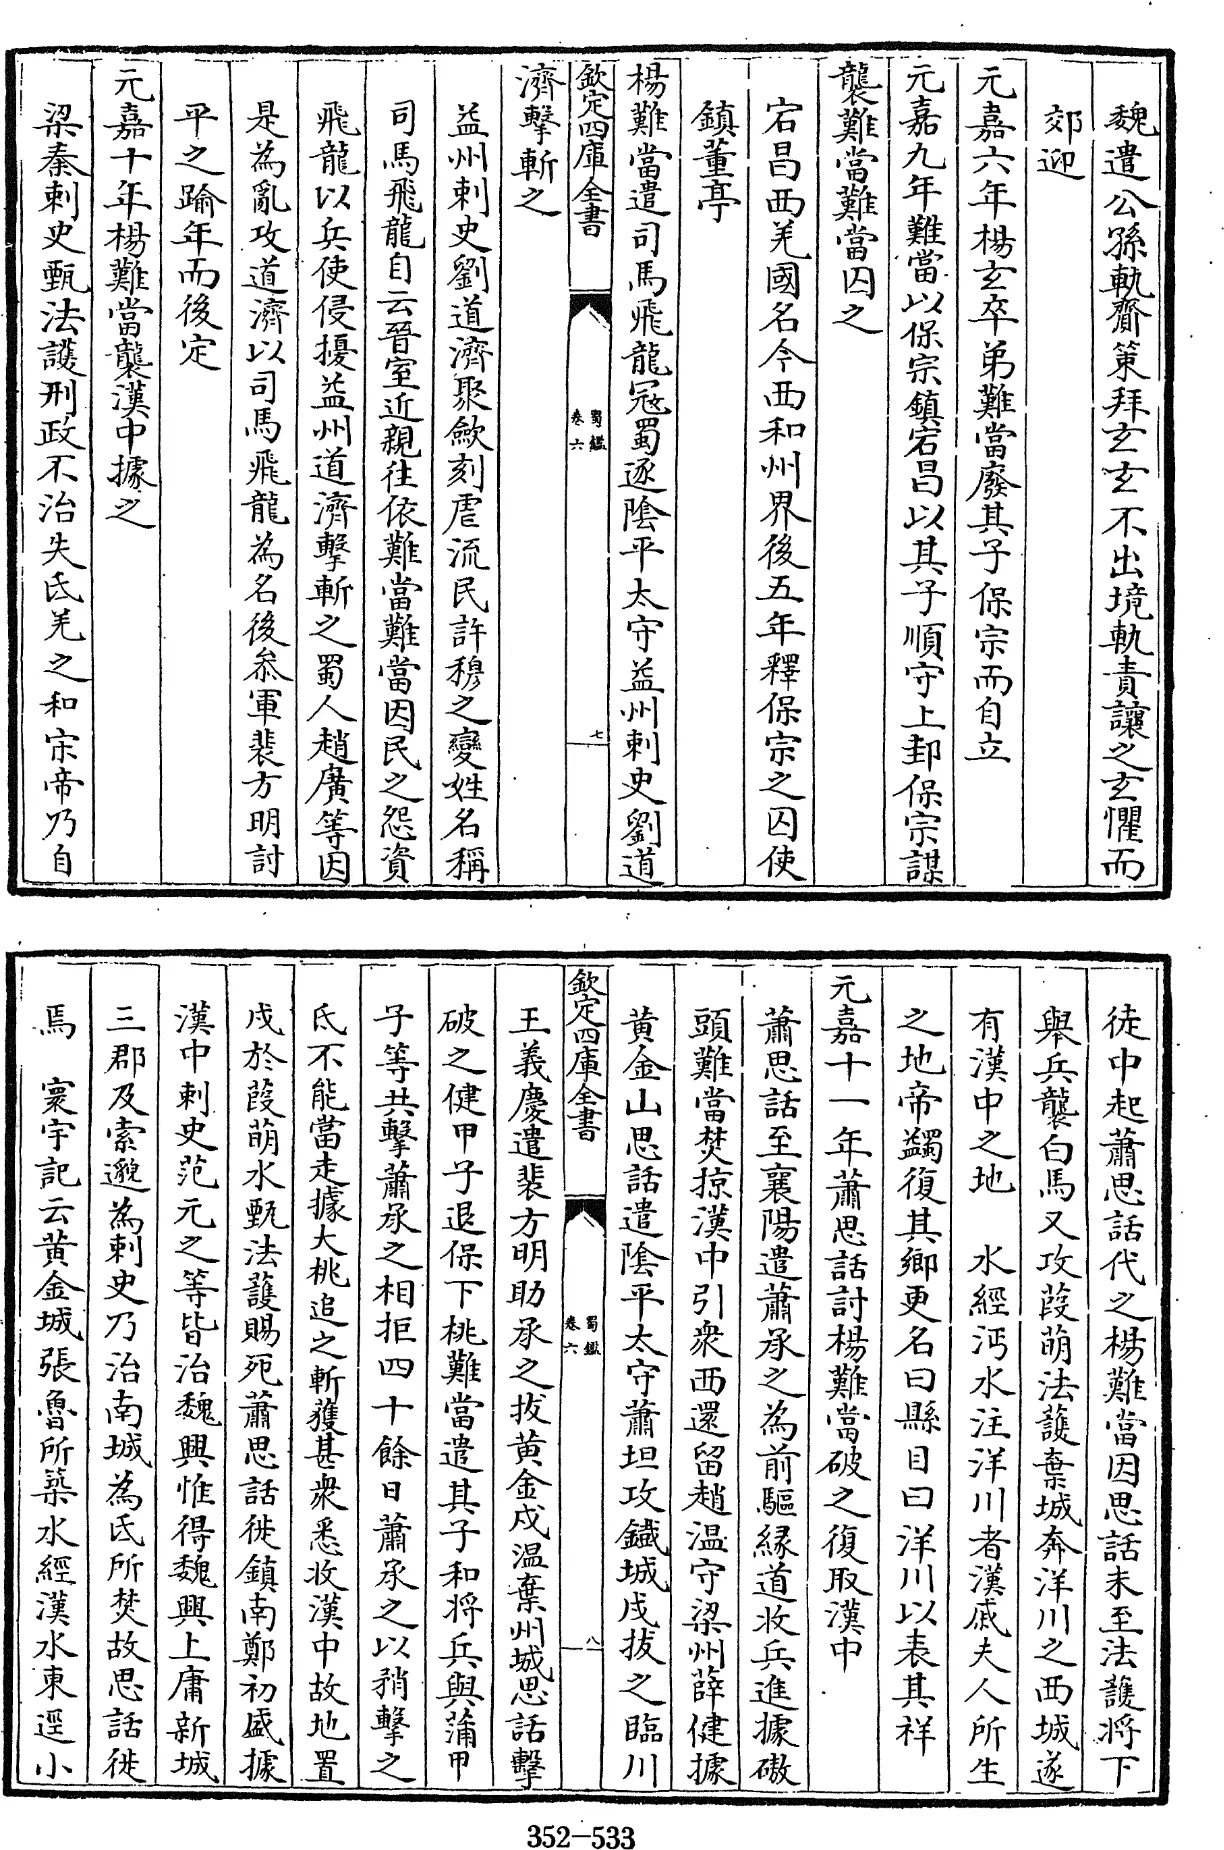 魏遣公孫軌齎策拜玄玄不出境軌責讓之玄懼而
郊迎
元嘉六年楊玄卒弟難當廢其子保宗而自立
元嘉九年難當以保宗鎮宕昌以其子順守上邽保宗謀
襲難當難當囚之
宕昌西羌國名今西和州界後五年釋保宗之囚使
鎮董亭
楊難當遣司馬飛龍冦蜀逐隂平太守益州刺史劉道
欽定四庫全書
蜀鑑
卷六
七
濟擊斬之
益州刺史劉道濟聚歛刻虐流民許穆之變姓名稱
司馬飛龍自云晉室近親往依難當難當因民之怨資
飛龍以兵使侵擾益州道濟擊斬之蜀人趙廣等因
是為亂攻道濟以司馬飛龍為名後叅軍裴方明討
平之踰年而後定
元嘉十年楊難當襲漢中據之
梁秦刺史甄法護刑政不治失氐羌之和宋帝乃自
徒中起蕭思話代之楊難當因思話未至法護將下
舉兵襲白馬又攻葭萌法護棄城奔洋川之西城遂
有漢中之地 水經沔水注洋川者漢戚夫人所生
之地帝蠲復其鄉更名曰縣目曰洋川以表其祥
元嘉十一年蕭思話討楊難當破之復取漢中
蕭思話至襄陽遣蕭承之為前驅縁道收兵進據磝
頭難當焚掠漢中引衆西還留趙溫守梁州薛健據
黃金山思話遣隂平太守蕭坦攻鐵城戍拔之臨川
欽定四庫全書
蜀鑑
卷六
八
王義慶遣裴方明助承之拔黃金戍溫棄州城思話擊
破之健甲子退保下桃難當遣其子和将兵與蒲甲
子等共擊蕭承之相拒四十餘日蕭承之以矟擊之
氐不能當走據大桃追之斬獲甚衆悉收漢中故地置
戍於葭萌水甄法護賜死蕭思話徙鎮南鄭初盛據
漢中刺史范元之等皆治魏興惟得魏興上庸新城
三郡及索邈為刺史乃治南城為氐所焚故思話徙
焉 寰宇記云黃金城張魯所築水經漢水東逕小
352-533